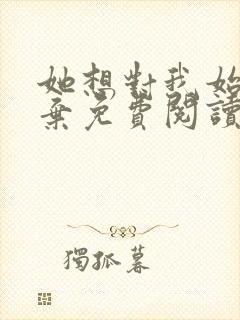 她想對我始
棄免費閱讀
獨孤暮